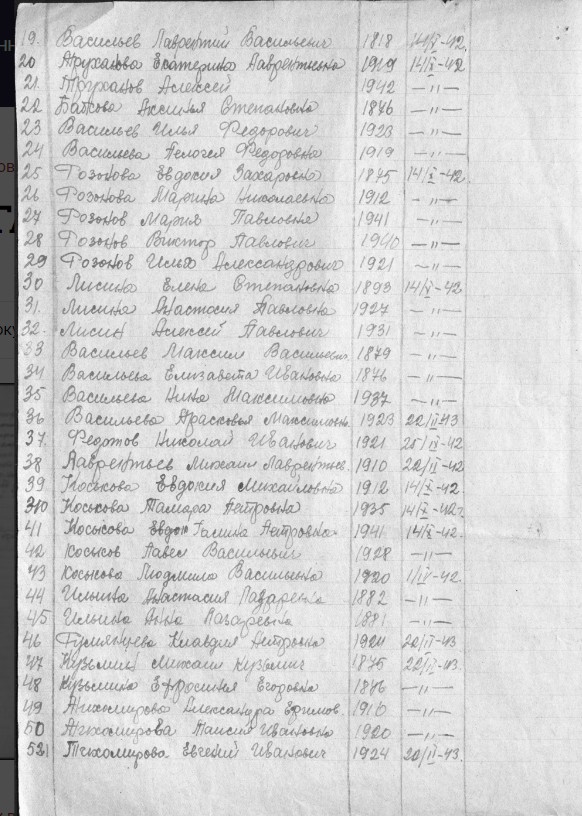 19. Васильев Лаврентий Васильевич 1818 14/X-42.
20 Труханова Екатерина Лаврентьевна 1919 14/X-42
21. Труханов Алексей 1942 —"—
22. Бапкова Аксинья Степановна 1876 —"—
23 Васильев Илья Федорович 1923 —"—
24 Васильева Пелогея Федоровна 1919 —"—
25 Фозонова Евдокия Захаровна 1875 14/X-42.
26 Фозонова Марина Николаевна 1912 —"—
27 Фозонов Мария Павловна 1941 —"—
28 Фозонов Виктор Павлович 1940 —"—
29 Фозонов Илья Александрович 1921 —"—
30 Лисина Елена Степановна 1893 14/X-42
31. Лисина Анастасия Павловна 1927 —"—
32. Лисин Алексей Павлович 1931 —"—
33 Васильев Максим Васильевич 1879 —"—
34 Васильева Елизавета Ивановна 1876 —"—
35 Васильева Нина Максимовна 1937 —"—
36 Васильева Прасковья Максимовн. 1923 22/II-43
37. Федотов Николай Иванович 1921 25/IX-42
38 Лаврентьев Михаил Лаврентьев. 1910 22/IX-42
39 Коськова Евдокия Михайловна 1912 14/X-42.
40 Коськова Тамара Петровна 1935 14/X-42.
41 Коськова Галина Петровна. 1941 14/X-42.
42 Коськов Павел Васильевич 1928 —"—
43 Коськова Людмила Васильевна 1920 1/IV-42.
44 Ильина Анастасия Лазаревна 1882 —"—
45 Ильина Анна Лазаревна 1881 —"—
46 Румянцева Клавдия Петровна 1924 22/II-43
47 Кузьмин Михаил Кузьмич 1875 22/II-43
48 Кузьмина Ефросинья Егоровна 1876 —"—
49 Тихомирова Александра Ефимов. 1910 —"—
50 Тихомирова Таисия Ивановна 1920 —"—
51 Тихомирова Евгений Иванович 1924 20/II-43.